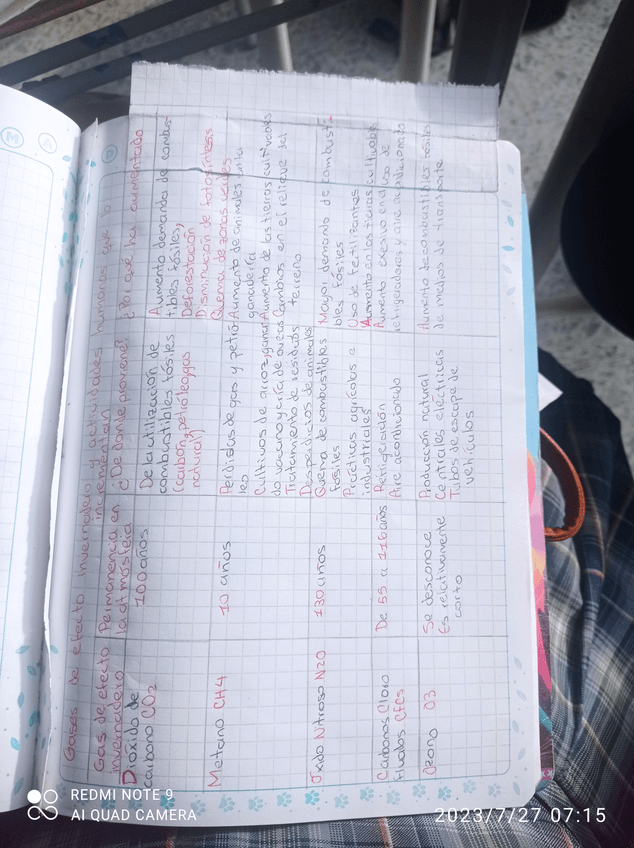 Gases de efecto invernadero y actividades humanas que lo
incrementan
Gas de efecto
invernadero
Permanencia en
la atmosfera
¿De donde proviene?
¿Por qué ha aumentado
Dióxido de
carbono CO2
100 años
De la utilización de
combustibles fósiles
(carbón, petróleo, gas
natural)
Aumento demanda de combus-
tibles fósiles,
Deforestación
Disminución de fotosintesis
Quema de zonas verdes
Metano CH4
10 años
Pérdidas de gas y petró
leo
Cultivos de arroz, gana
do vacuno y cría de ovejas
Tratamiento de residuos
Desperdictos de animales
Aumento de animales en la
ganadería
Aumento de las tierras cultivables
Cambios en el relieve del
terreno
Oxido Nitroso N2O
130 años
Quema de combustibles
fósiles
Prácticas agrícolas e
industriales
Mayor demanda de combusti-
bles fósiles
Uso de fertilizantes
Aumento en las tierras cultivables
Carbonos Cloro
Fluidos CFCs
De 55 a 116 años
Refrigeración
Aire acondicionado
Aumento excesivo en el uso de
refrigeradores y aire acondicionado
Ozono O3
Se desconoce
Es relativamente
corto
Producción natural
Centrales eléctricas
Tubos de escape de
vehículos
Aumento de combustibles fósiles
de medios de transporte
M
A
REDMI NOTE 9
AI QUAD CAMERA
2023/7/27 07:15